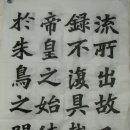 流所出故
録不復具
帝皇之始
於朱鳥之